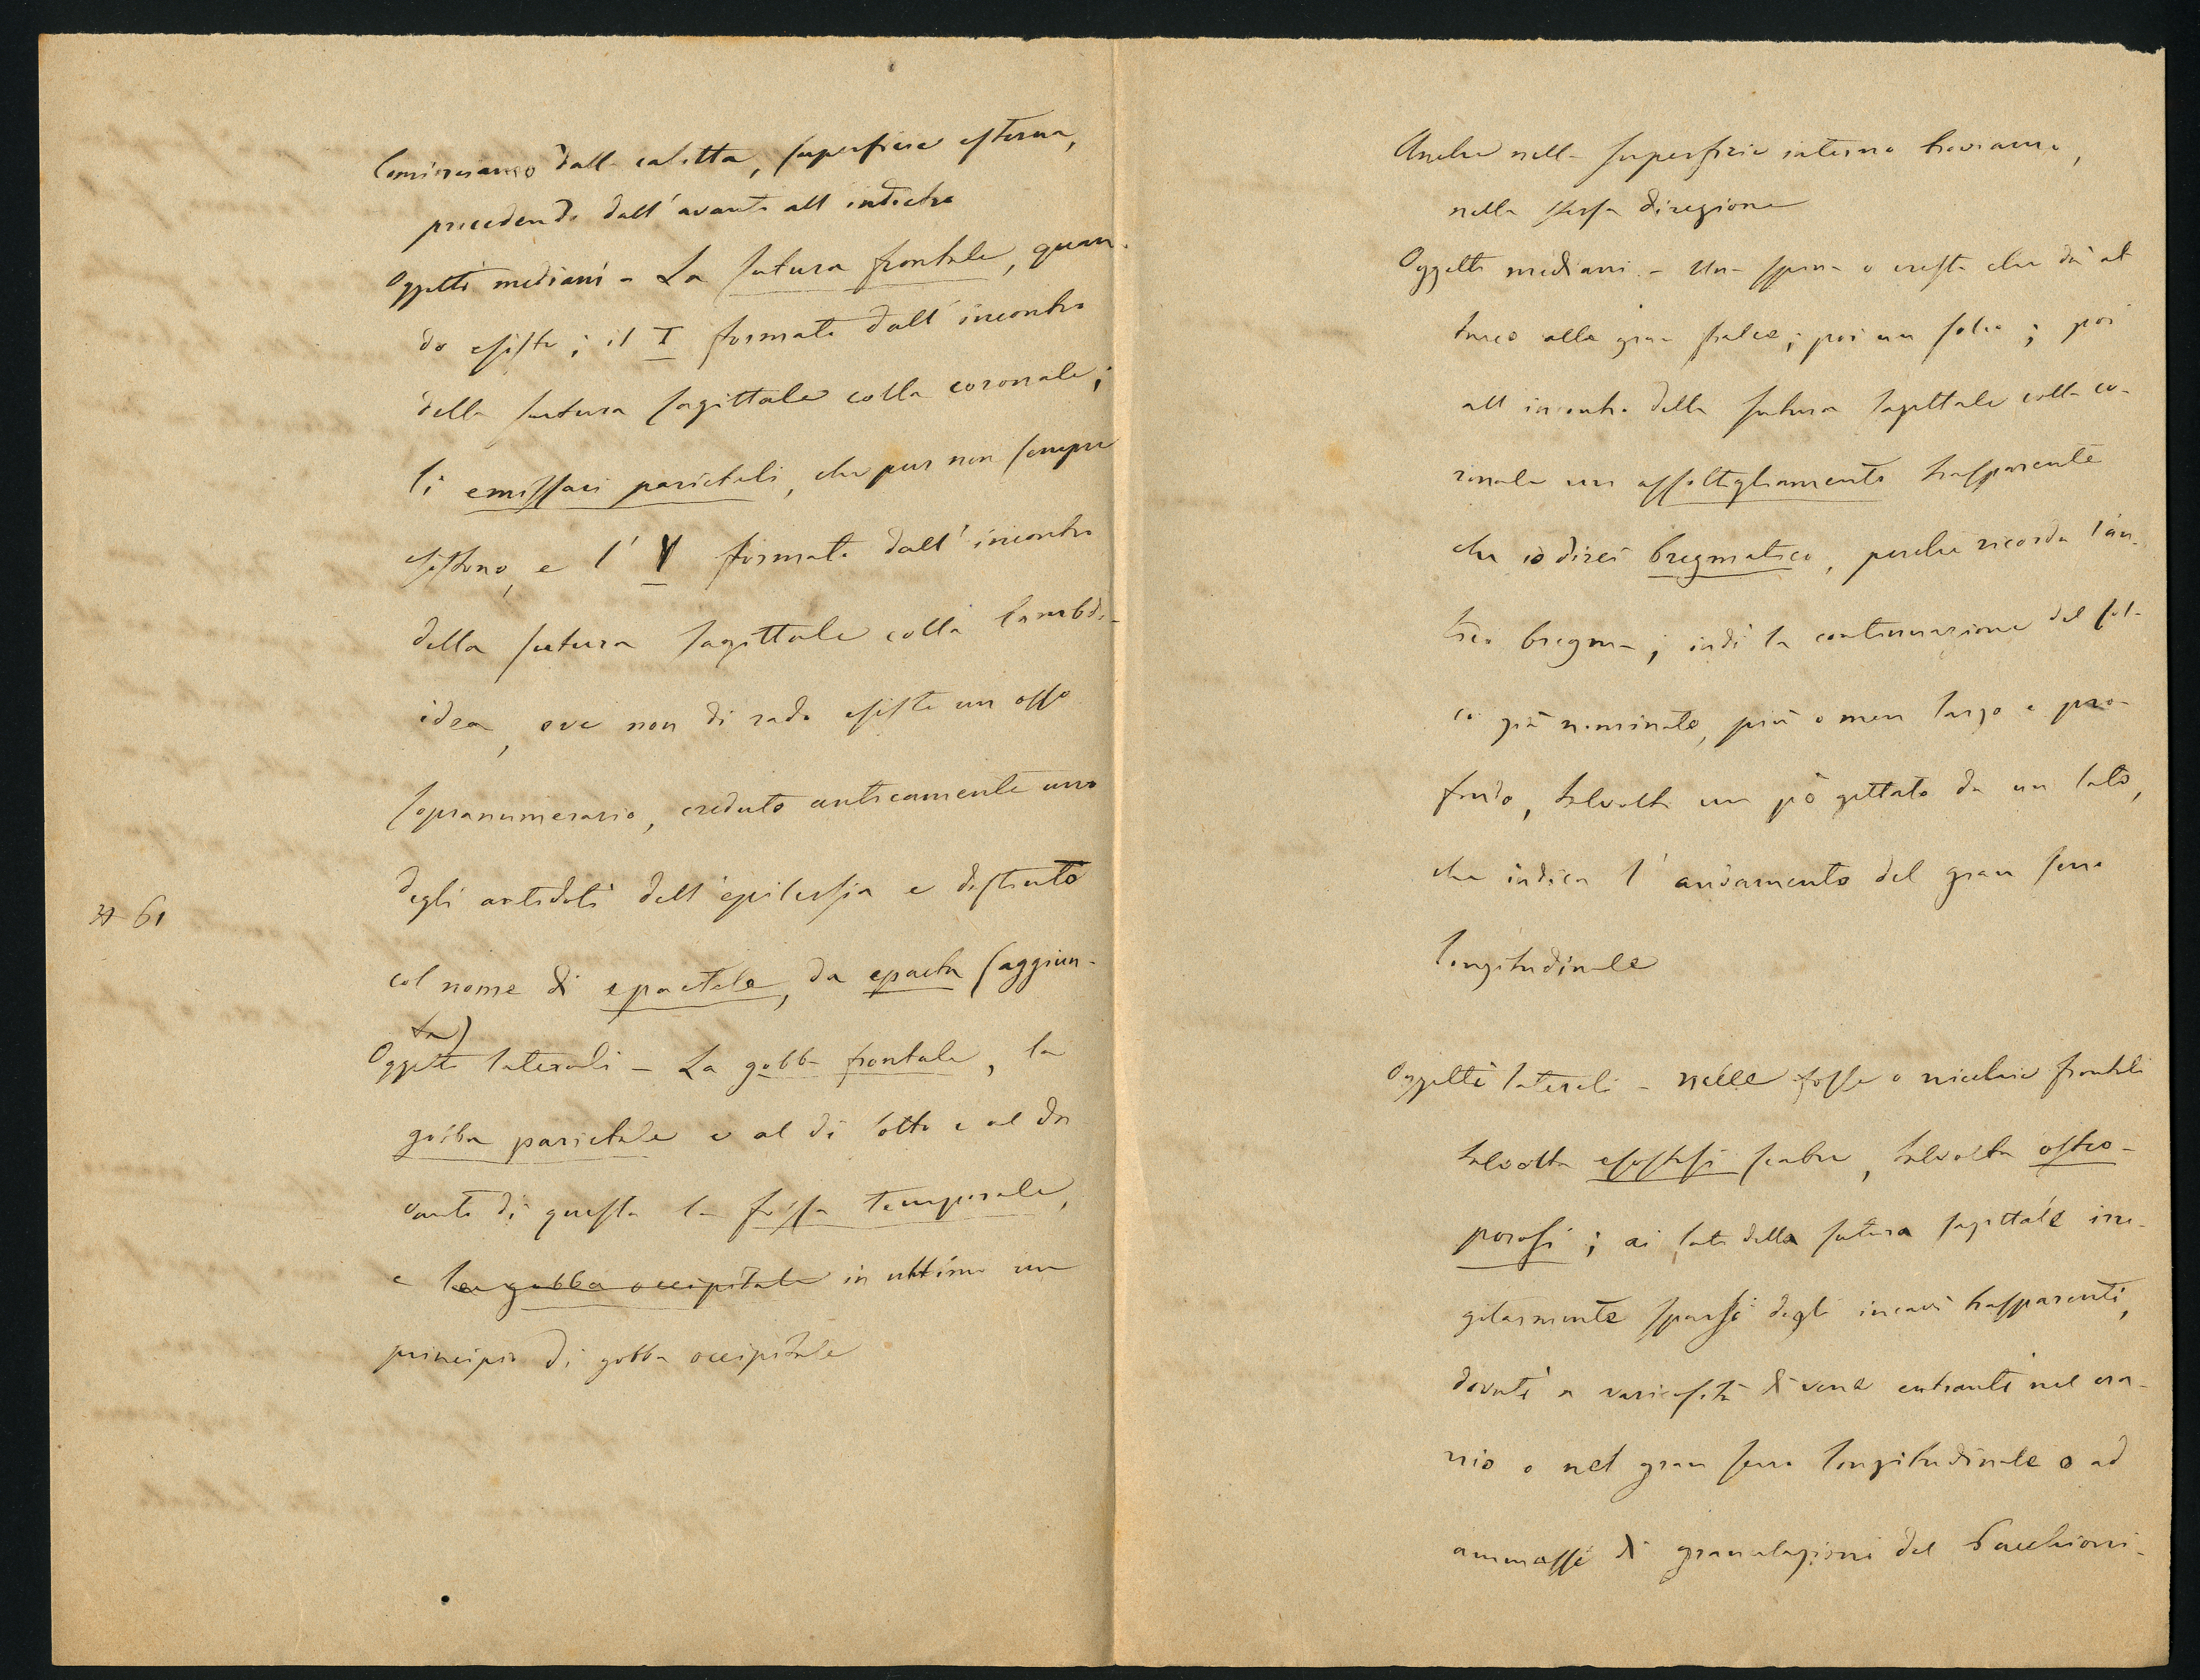 Cominciamo dalla calotta, superficie esterna,
procedendo dall'avanti all'indietro
Oggetti mediani - La sutura frontale, quan-
do esiste; il T formato dall'incontro
della sutura sagittale colla coronale;
li emissari parietali, che pur non sempre
esistono, e l' Y formato dall'incontro
della sutura sagittale colla lambdo-
idea, ove non di rado esiste un osso
sopranumerario, creduto anticamente uno
degli antidoti dell'epilessia e distinto
# 61
col nome di epactale, da epacta (aggiun-
ta)
Oggetti laterali - La gobba frontale, la
gobba parietale e al di sotto e al da-
vanti di questa la fossa temporale,
e la gobba occipitale in ultimo un
principio di gobba occipitale
Anche nella superficie interna troviamo,
nella stessa direzione
Oggetti mediani - Una spina o cresta che dà at-
tacco alla gran falce; poi un solco; poi
all'incontro della sutura sagittale colla co-
ronale un assottigliamento trasparente
che io direi bregmatico, perchè ricorda l'an-
tico bregma; indi la continuazione del sol-
co già nominato, più o men largo e pro-
fondo, talvolta un pò gettato da un lato,
che indica l'andamento del gran seno
longitudinale
Oggetti laterali - nelle fosse o nicchie frontali
talvolta esostosi scabre, talvolta osteo-
porosi; ai lati della sutura sagittale irre-
golarmente sparsi degli incavi trasparenti,
dovuti a varicosità di vene entranti nel cra-
nio o nel gran seno longitudinale o ad
ammassi di granulazioni del Pacchioni-